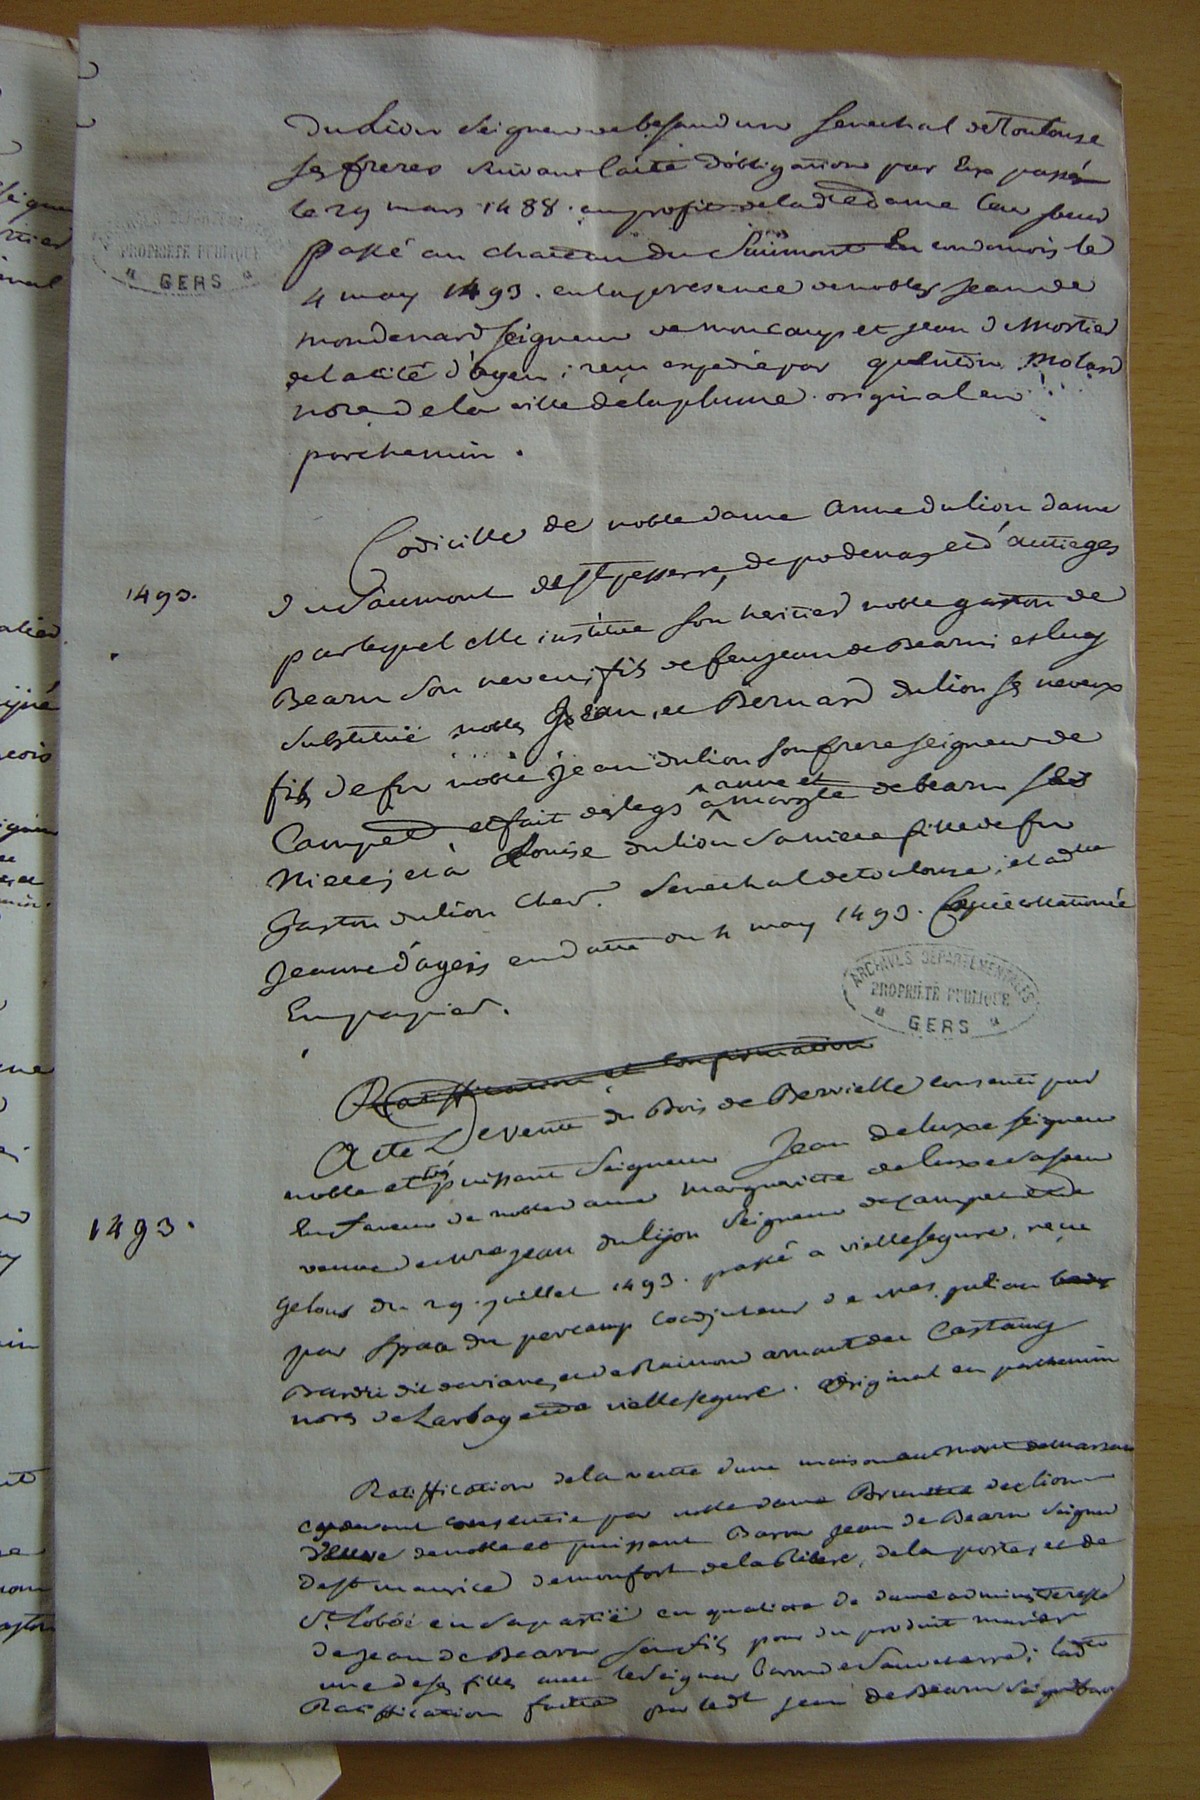 Du Lion Seigneur de besaudun Senechal de Toulouse
ses freres suivant l'acte d'obligation par Eux passé
le 29 mars 1488. au profit de lade dame leur soeur
passé au chateau du Saumont En condomois le
4 may 1493. en la presence de nobles jean de
mondenard seigneur de moncaup et jean d
de la cité d'agen; reçu expedié par quentin Molard
nore de la ville de laplume. original en
parchemin.
Codicille de noble dame anne du lion dame
1493.
du Saumont de St pesserre, de podenas et d'
par lequel elle institue son heritier noble gaston de
Bearn son neveu, fils de feu jean de Bearn, et luy
substitue nobles Jean, et Bernard du lion ses neveux
fils de fu noble jean du lion son frere seigneur de
Campet et fait des legs a anne et margte de bearn ses
Nieces, et à Louise du lion sa niece fille de fu
gaston du lion cher. Senechal de toulouse; et a dlle
jeanne d'ageis en datte du 4 may 1493. Copie collationnée
En papier.
ARCHIVES DEPARTEMENTALES
PROPRIÉTÉ PUBLIQUE
GERS
Ratiffication et Confirmation
Acte De vente du Bois de Bervielle consenti par
noble et très puissant Seigneur Jean de luxe seigneur
En faveur de noble dame margueritte de luxe sa soeur
1493.
veuve de mre jean du lyon Seigneur de Campet et de
gelous du 29. juillet 1493. passé a viellesegure. reçue
par du percamp coadjuteur de mes julian
dit de viane, et de Raimond arnaut du Castaing
nores de Larbag et de viellesegure. Original en parchemin
Ratiffication de la vente d'une maison au mont de marsan
cydevant consentie par noble dame Brunette de lion
veuve de noble et puissant Baron jean de Bearn Seigneur
de St maurice de monfort de la Ribere, de la poste, et de
St Loboé en sa partie en qualité de dame administeresse
de jean de Bearn son fils pour du produit marier
une de ses filles avec le Seigneur Baron de Sauveterre; lade
Ratiffication faitte par ledt jean de Bearn Seigneur
PROPRIÉTÉ PUBLIQUE
GERS